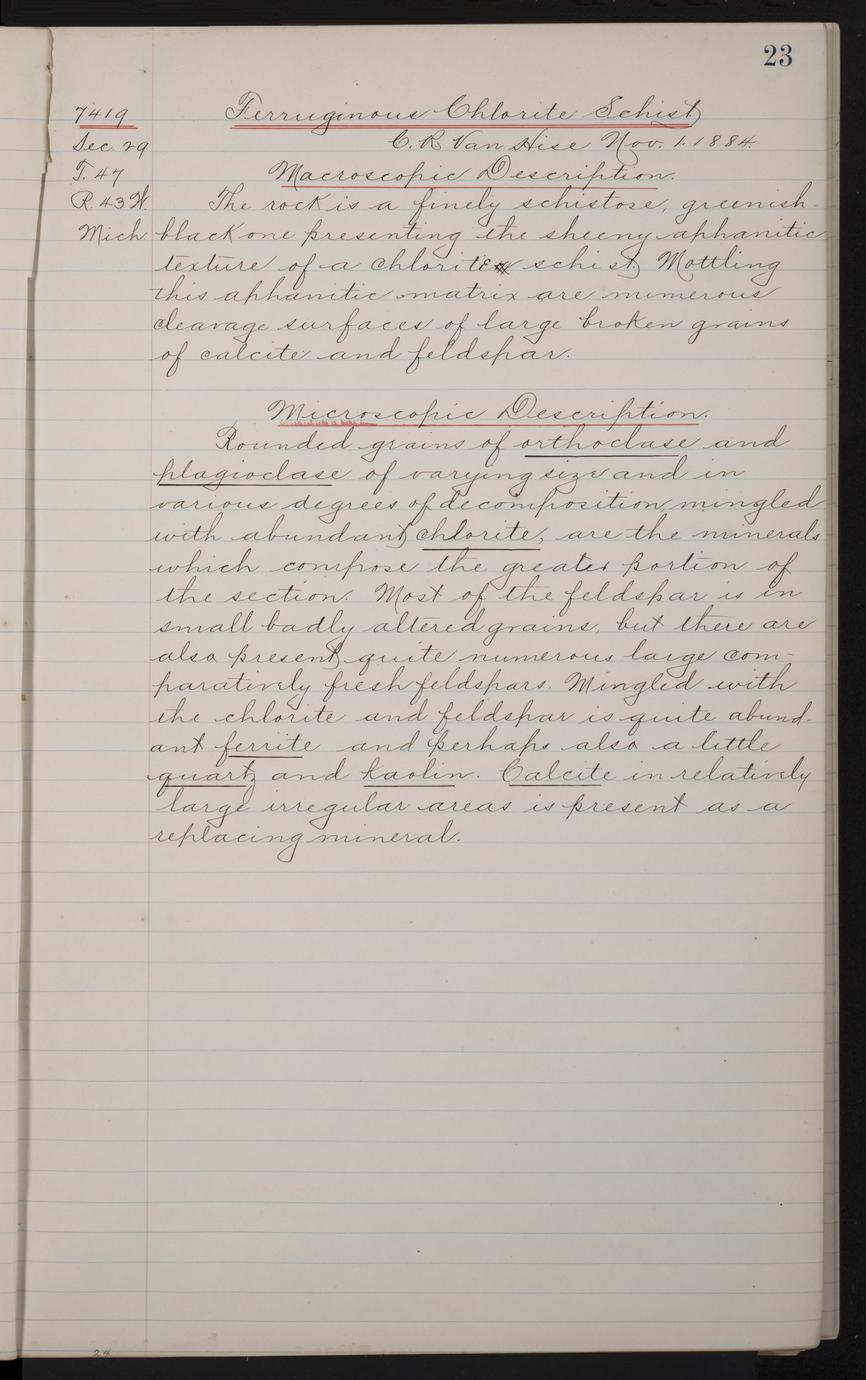 23
7419 Ferruginous Chlorite Schist
Sec. 29 C. R. Van Hise Nov. 1. 1884.
T. 47 Macroscopic Description.
R. 43 W. The rock is a finely schistose, greenish-
Mich. black one presenting the sheeny aphanitic
texture of a chlorite schist. Mottling
this aphanitic matrix are numerous
cleavage surfaces of large broken grains
of calcite and feldspar.
Microscopic Description.
Rounded grains of orthoclase and
plagioclase of varying size and in
various degrees of decomposition, mingled
with abundant chlorite, are the minerals
which compose the greater portion of
the section. Most of the feldspar is in
small badly altered grains, but there are
also present quite numerous large com-
paratively fresh feldspars. Mingled with
the chlorite and feldspar is quite abund-
ant ferrite and perhaps also a little
quartz and kaolin. Calcite in relatively
large irregular areas is present as a
replacing mineral.
24